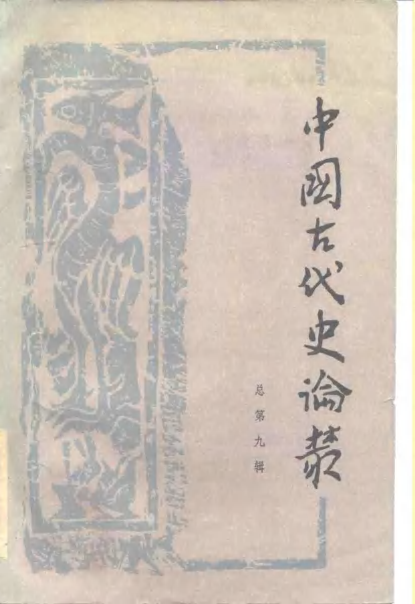 中國古代史論叢
总第九辑